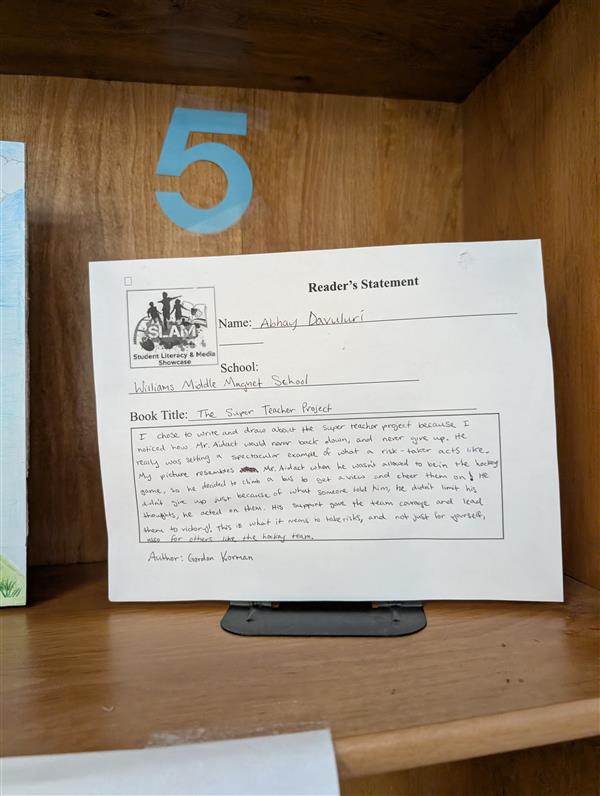 5
Reader's Statement
SLAM
Student Literacy & Media
Showcase
Name: Abhay Davuluri
School:
Williams Middle Magnet School
Book Title: The Super Teacher Project
I chose to write and draw about the super teacher project because I
noticed how Mr. Aidact would never back down, and never give up. He
really was setting a spectacular example of what a risk-taker acts like.
My picture resembles Mr. Aidact when he wasn't allowed to be in the hockey
game, so he decided to climb a bus to get a view and cheer them on! He
didn't give up just because of what someone told him, he didn't limit his
thoughts, he acted on them. His support gave the team courage and lead
them to victory! This is what it means to take risks, and not just for yourself,
also for others like the hockey team.
Author: Gordon Korman